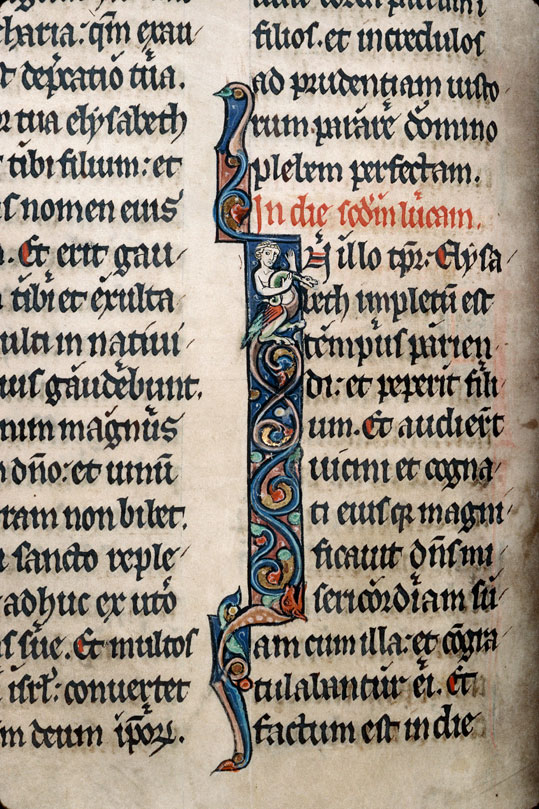 charia: qm̄ exau
t dep̄catio tua.
r tua elysabeth
tibi filium: et
s nomen eius
. Et erit gau-
tibi et exulta
ulti in nativi-
ius gaudebunt.
nim magnus
dn̄o: et uinū
ram non bibet.
sancto reple-
adhuc ex utō
s sūe. Et multos
isrl: conuertet
m deum ip̄oꝝ.
filios. et incredulos
ad prudentiam iusto
rum. parare domino
plebem perfectam.
In die scd̄m lucam.
In illo tp̄r: Elysa-
beth impletū est
tempus parien-
di: et peperit fili-
um. Et audiert̄
uicini et cogna-
ti eius qꝛ magni-
ficauit dn̄s mi-
sericordiam su-
am cum illa: et cōgra
tulabantur ei. Et
factum est in die